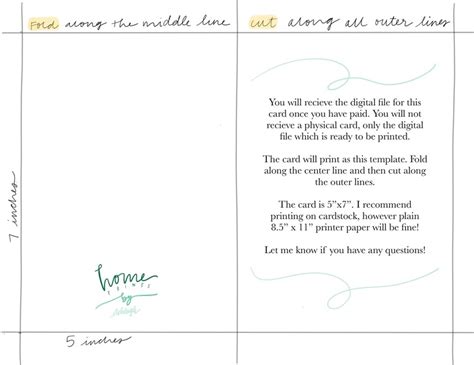 Fold along the middle line
cut along all outer lines
7 inches
You will recieve the digital file for this
card once you have paid. You will not
recieve a physical card, only the digital
file which is ready to be printed.
The card will print as this template. Fold
along the center line and then cut along
the outer lines.
The card is 5”x7”. I recommend
printing on cardstock, however plain
8.5” x 11” printer paper will be fine!
Let me know if you have any questions!
home
by
5 inches